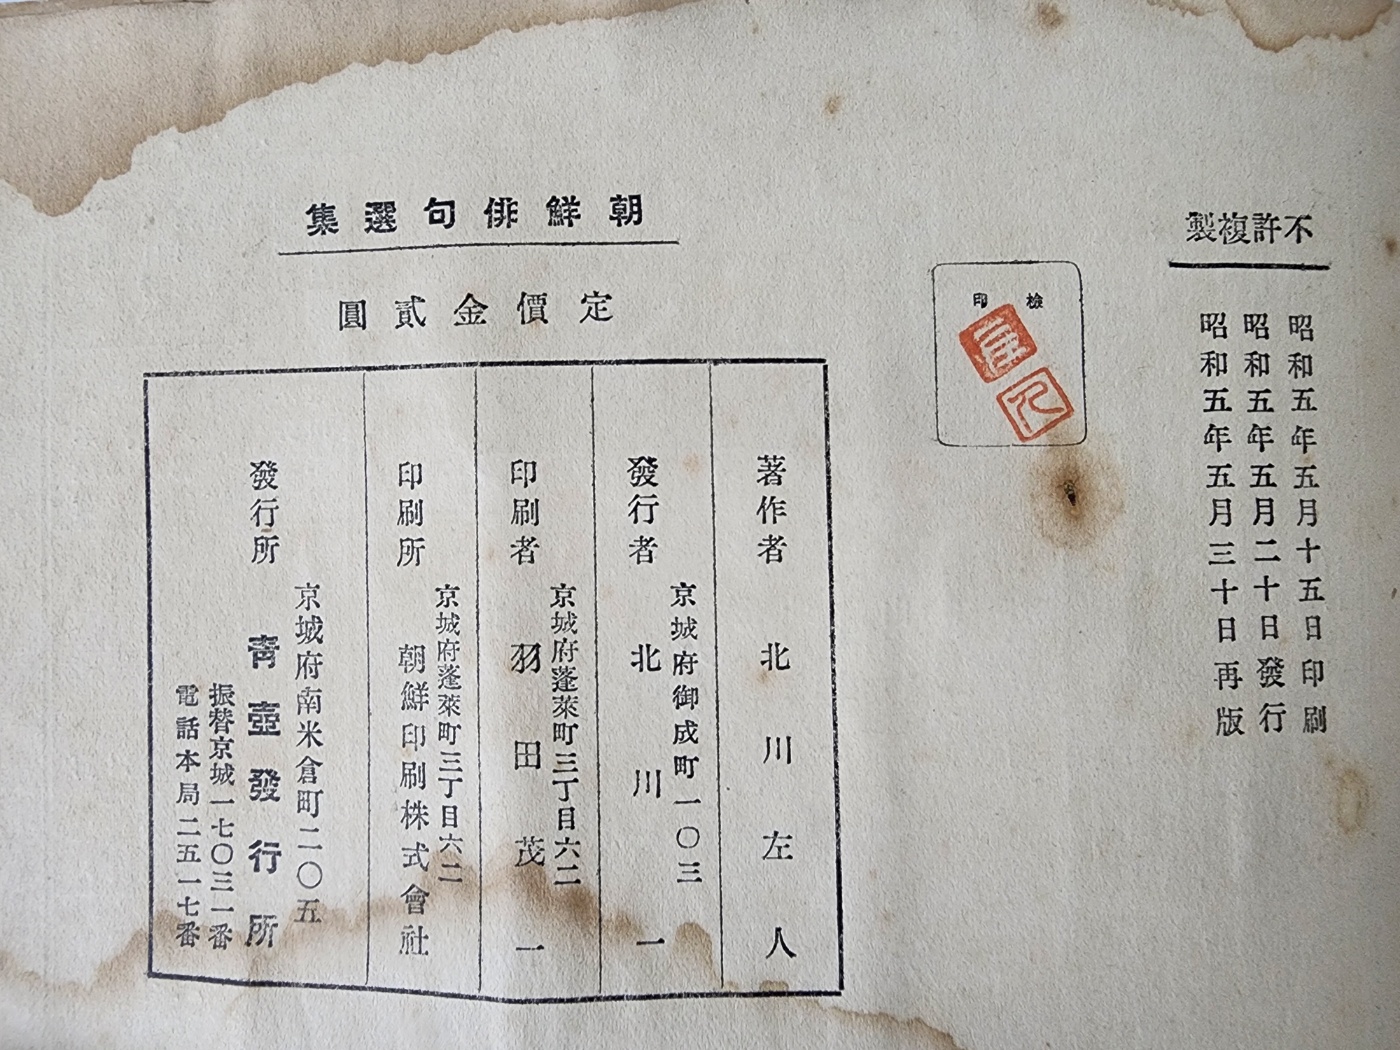 不許複製
昭和五年五月十五日印刷
昭和五年五月二十日發行
昭和五年五月三十日再版
檢印
朝鮮俳句選集
定價金貳圓
著作者 北川左人
京城府御成町一〇三
發行者 北川一
京城府蓬萊町三丁目六二
印刷者 羽田茂一
京城府蓬萊町三丁目六二
印刷所 朝鮮印刷株式會社
京城府南米倉町二〇五
發行所 靑壺發行所
振替京城一七〇三一番
電話本局二五一七番